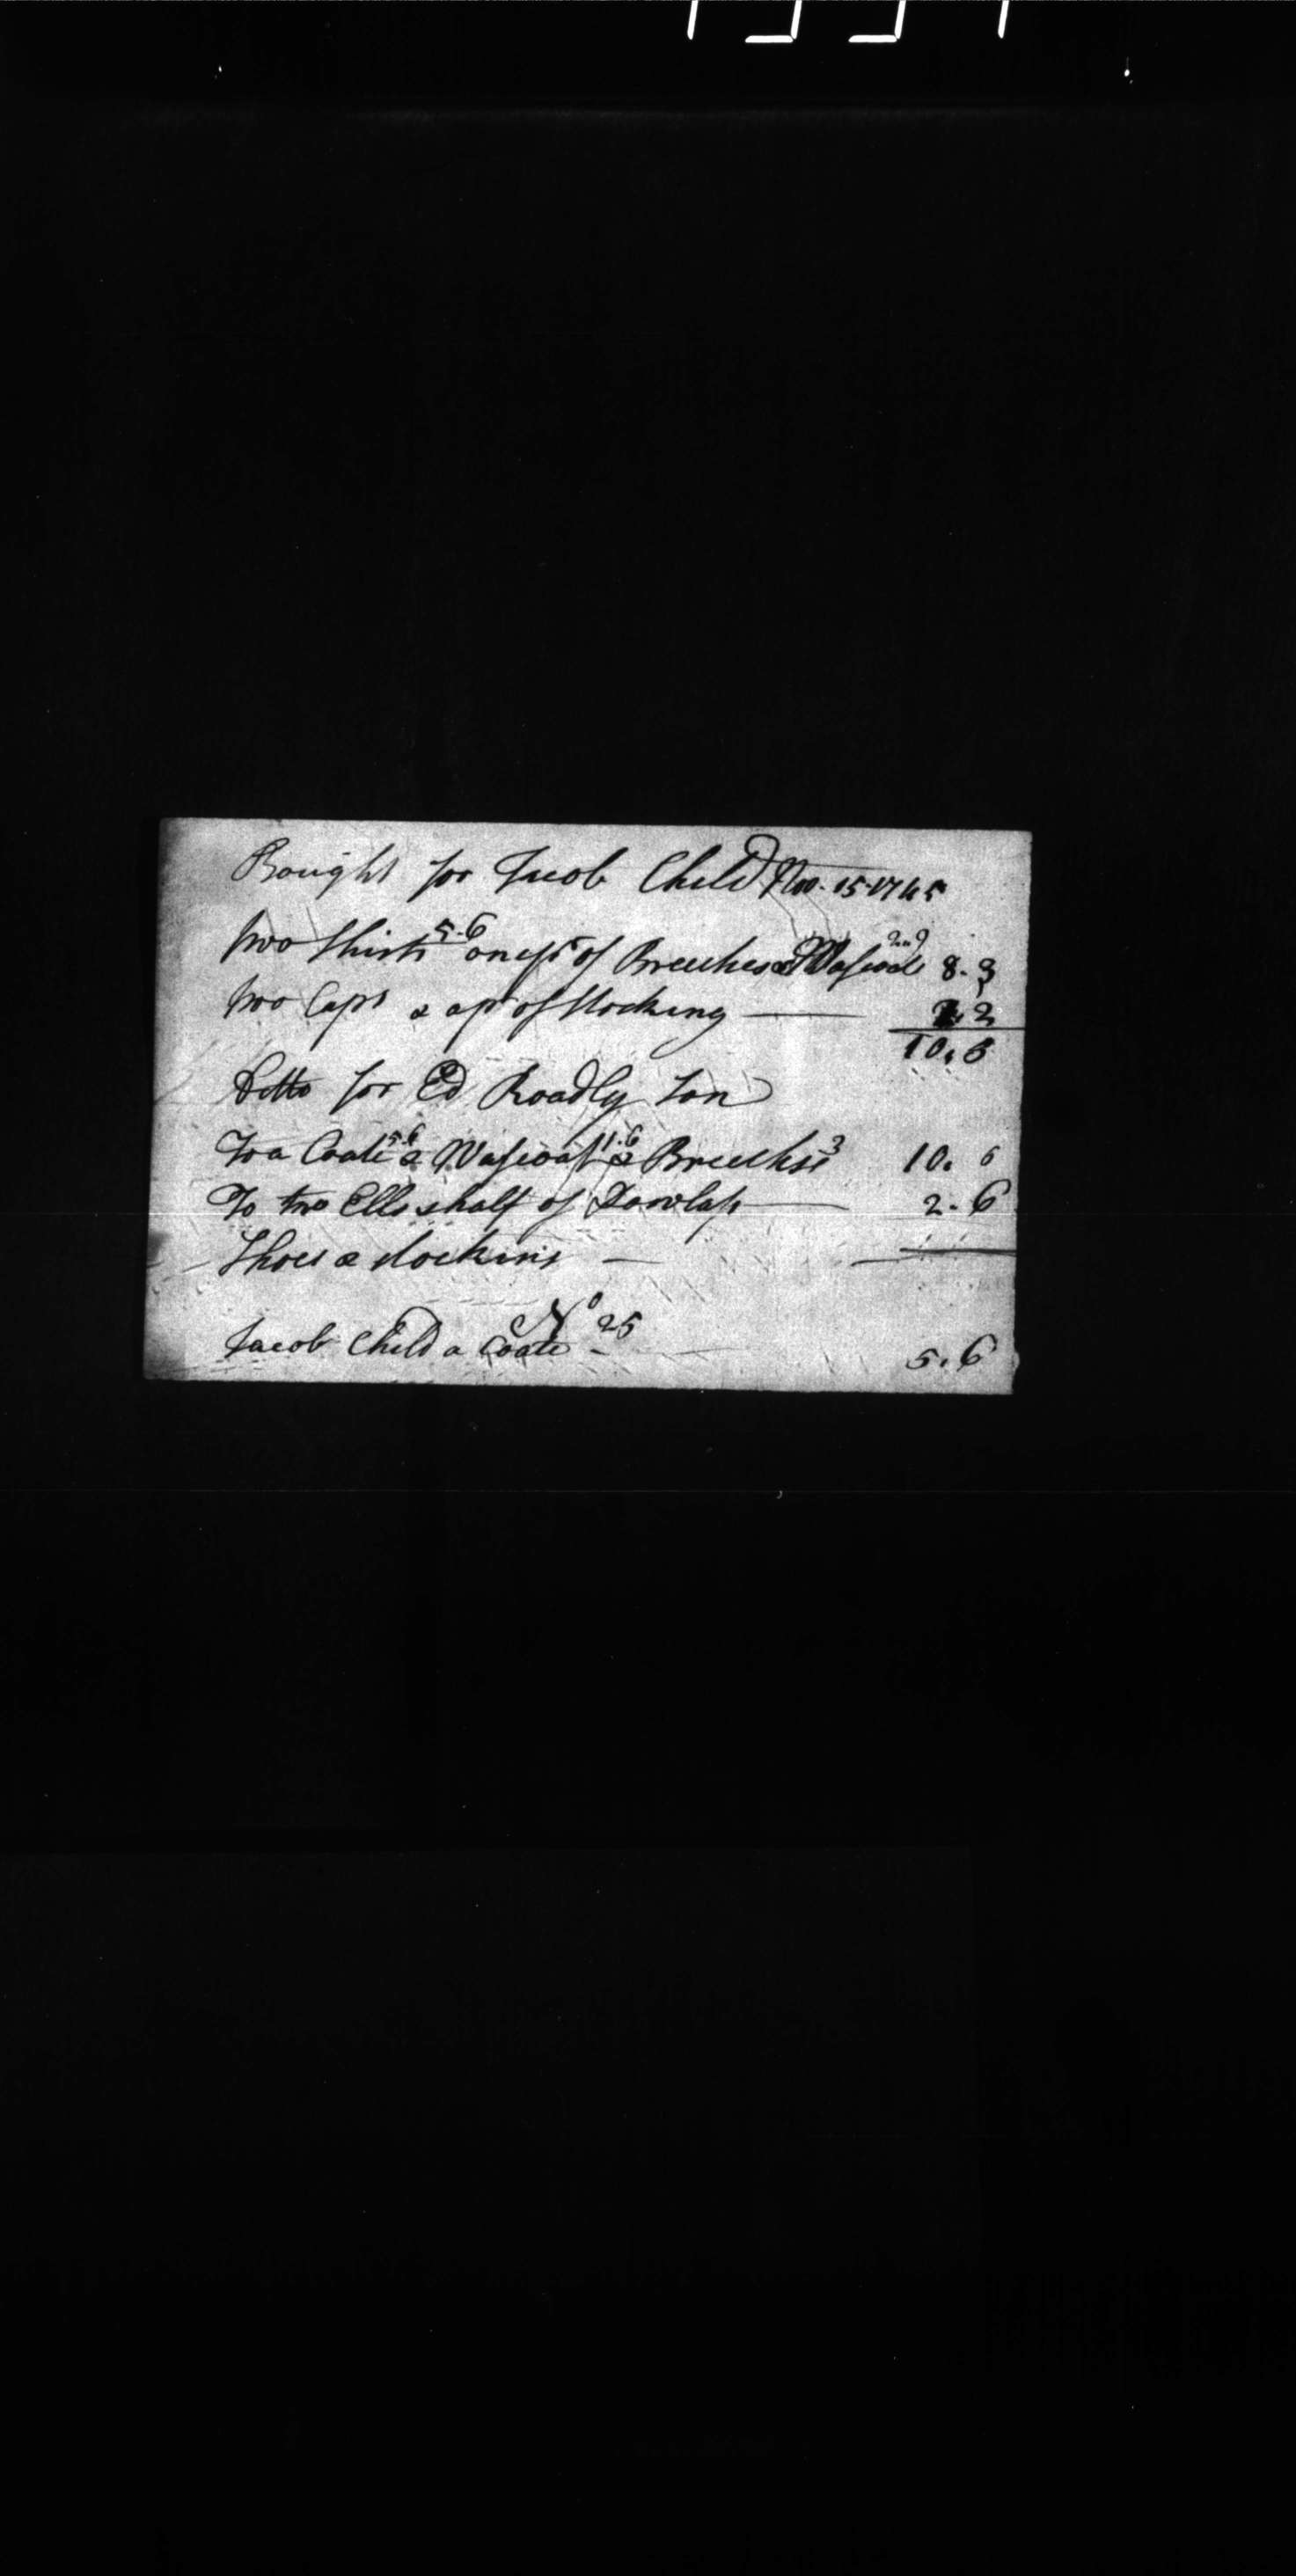 Bought for Jacob Child Nov. 15 1745
two Shirts 5.6 one pr of Breeches & Wascoat 2..9 8.3
two Caps & a pr of Stocking 2.2
10.
Ditto for Ed Roadly Son
To a Coate 5.6 & Wascoat 1.6 & Breeches 3 10. 6
To two Ells & half of Dowlas 2.6
Shoes & Stockins
No 25
Jacob Child a Coate 5.6